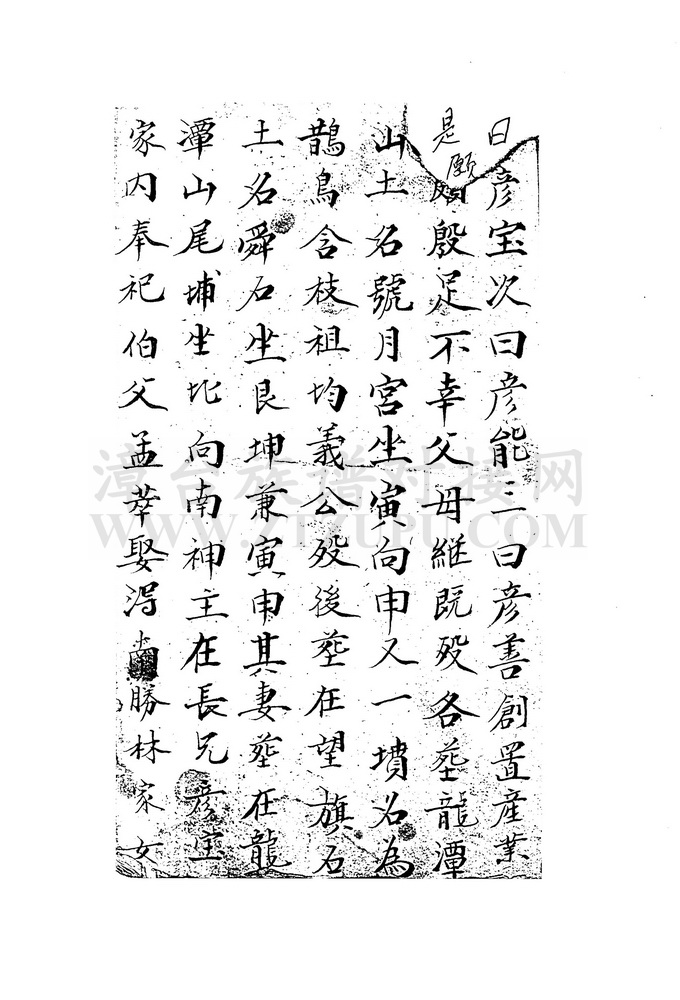 曰彦宝次曰彦能三曰彦善創置産業
是願殷足不幸父母継既殁各塟龍潭
山土名號月宮坐寅向申又一墳名為
鵲鳥含枝祖均義公殁後塟在望旗石
土名舜石坐艮坤兼寅申其妻塟在龍
潭山尾埔坐圵向南神主在長兄彦宝
家内奉祀伯父孟莘娶淂勝林家女
漳台族谱对接网
WWW.ZTZUPU.COM